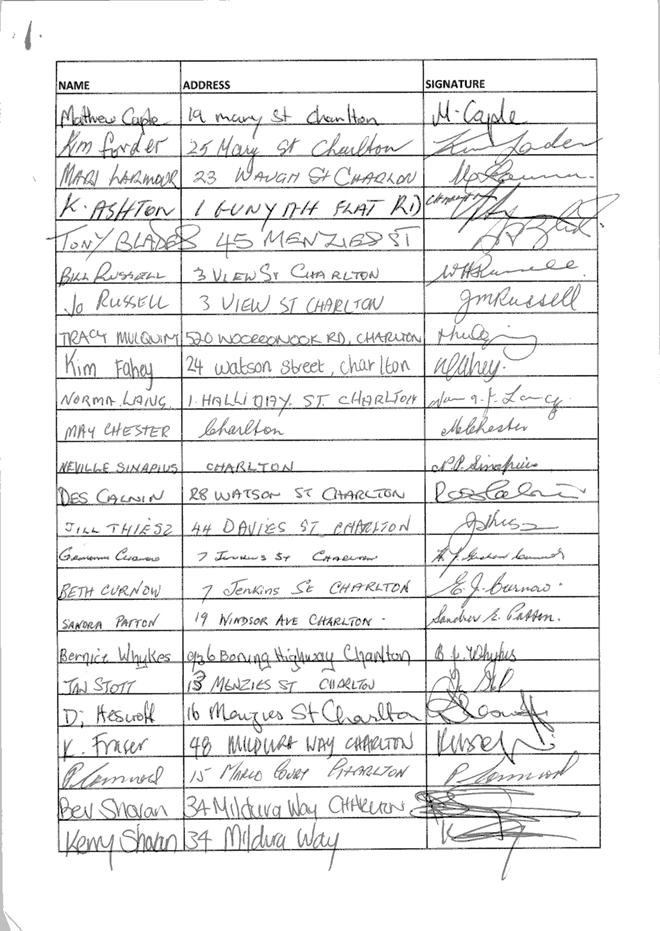 1.
NAME ADDRESS SIGNATURE
Matthew Caple 19 mary St Charlton M. Caple
Kim Forder 25 Mary St Charlton
MARJ LARMOUR 23 WAUGH St CHARLON
K. ASHTON 1 GUNYAH FLAT RD CHARLTON
TONY BLADES 45 MENZIES ST
BILL RUSSELL 3 VIEW St CHARLTON WHRussell
Jo RUSSELL 3 VIEW ST CHARLTON JMRussell
TRACY 520 WOOROONOOK RD, CHARLTON
Kim Fahey 24 watson street, charlton KFahey.
NORMA. LANG. 1. HALLIDAY. ST. CHARLTON
MAY CHESTER Charlton MChester
NEVILLE SINAPIUS CHARLTON N.P. Sinapius
DES CALNIN 28 WATSON ST CHARLTON
JILL THIESZ 44 DAVIES ST CHARLTON
7 Jenkins St CHARLTON
BETH CURNOW 7 Jenkins St CHARLTON E. J. Curnow.
SANDRA PATTON 19 WINDSOR AVE CHARLTON. Sandra E. Patton.
Bernice Whykes Highway Charlton B L Whykes
JAN STOTT MENZIES ST CHARLTON
Di Hescroft 16 Menzies St Charlton
K. Fraser 48 MILDURA WAY CHARLTON
15 COURT CHARLTON
Bev Sharan 34 Mildura Way CHARLTON
Kerry Sharan 34 Mildura Way